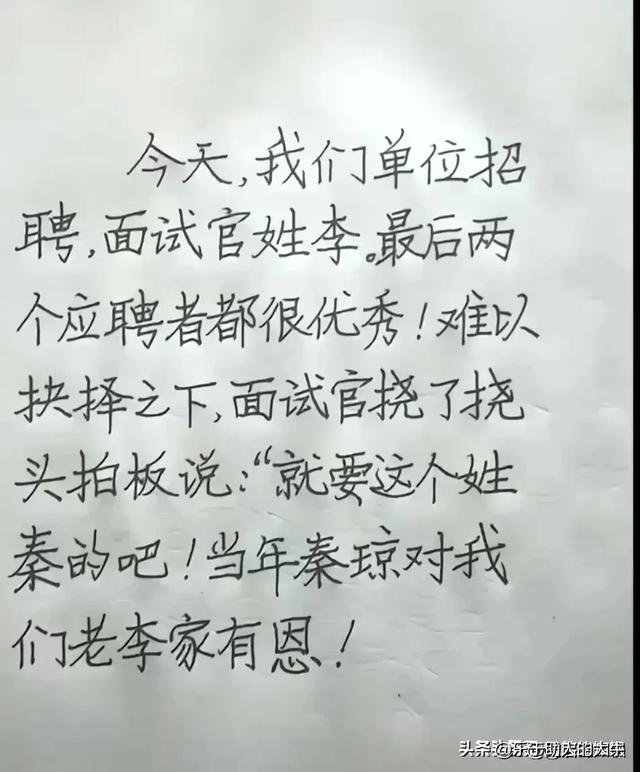 今天,我们单位招
聘,面试官姓李。最后两
个应聘者都很优秀!难以
抉择之下,面试官挠了挠
头拍板说:“就要这个姓
秦的吧!当年秦琼对我
们老李家有恩!